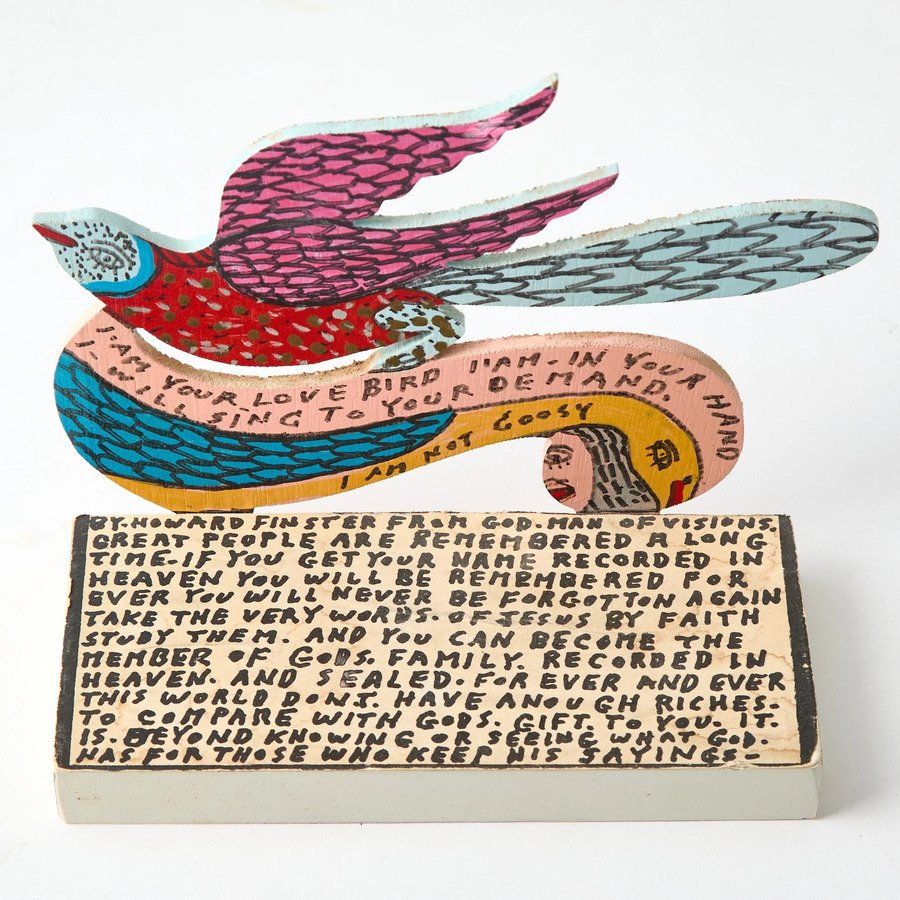 I·AM YOUR LOVE BIRD I'AM-IN YOUR HAND
I-WILL SING TO YOUR DEMAND.
I AM NOT GOOSY
BY.HOWARD FINSTER FROM GOD.MAN OF VISIONS.
GREAT PEOPLE ARE REMEMBERED A LONG
TIME.IF YOU GET YOUR NAME RECORDED IN
HEAVEN YOU WILL BE REMEMBERED FOR
EVER YOU WILL NEVER BE FORGOTTON AGAIN
TAKE THE VERY WORDS. OF JESUS BY FAITH
STUDY THEM. AND YOU CAN BECOME THE
MEMBER OF GODS. FAMILY. RECORDED IN
HEAVEN. AND SEALED. FOR EVER AND EVER
THIS WORLD DON,T. HAVE ANOUGH RICHES-
TO COMPARE WITH GODS. GIFT. TO YOU. IT.
IS. BEYOND KNOWING OR SEEING WHAT GOD.
HAS FOR THOSE WHO KEEP HIS SAYINGS-